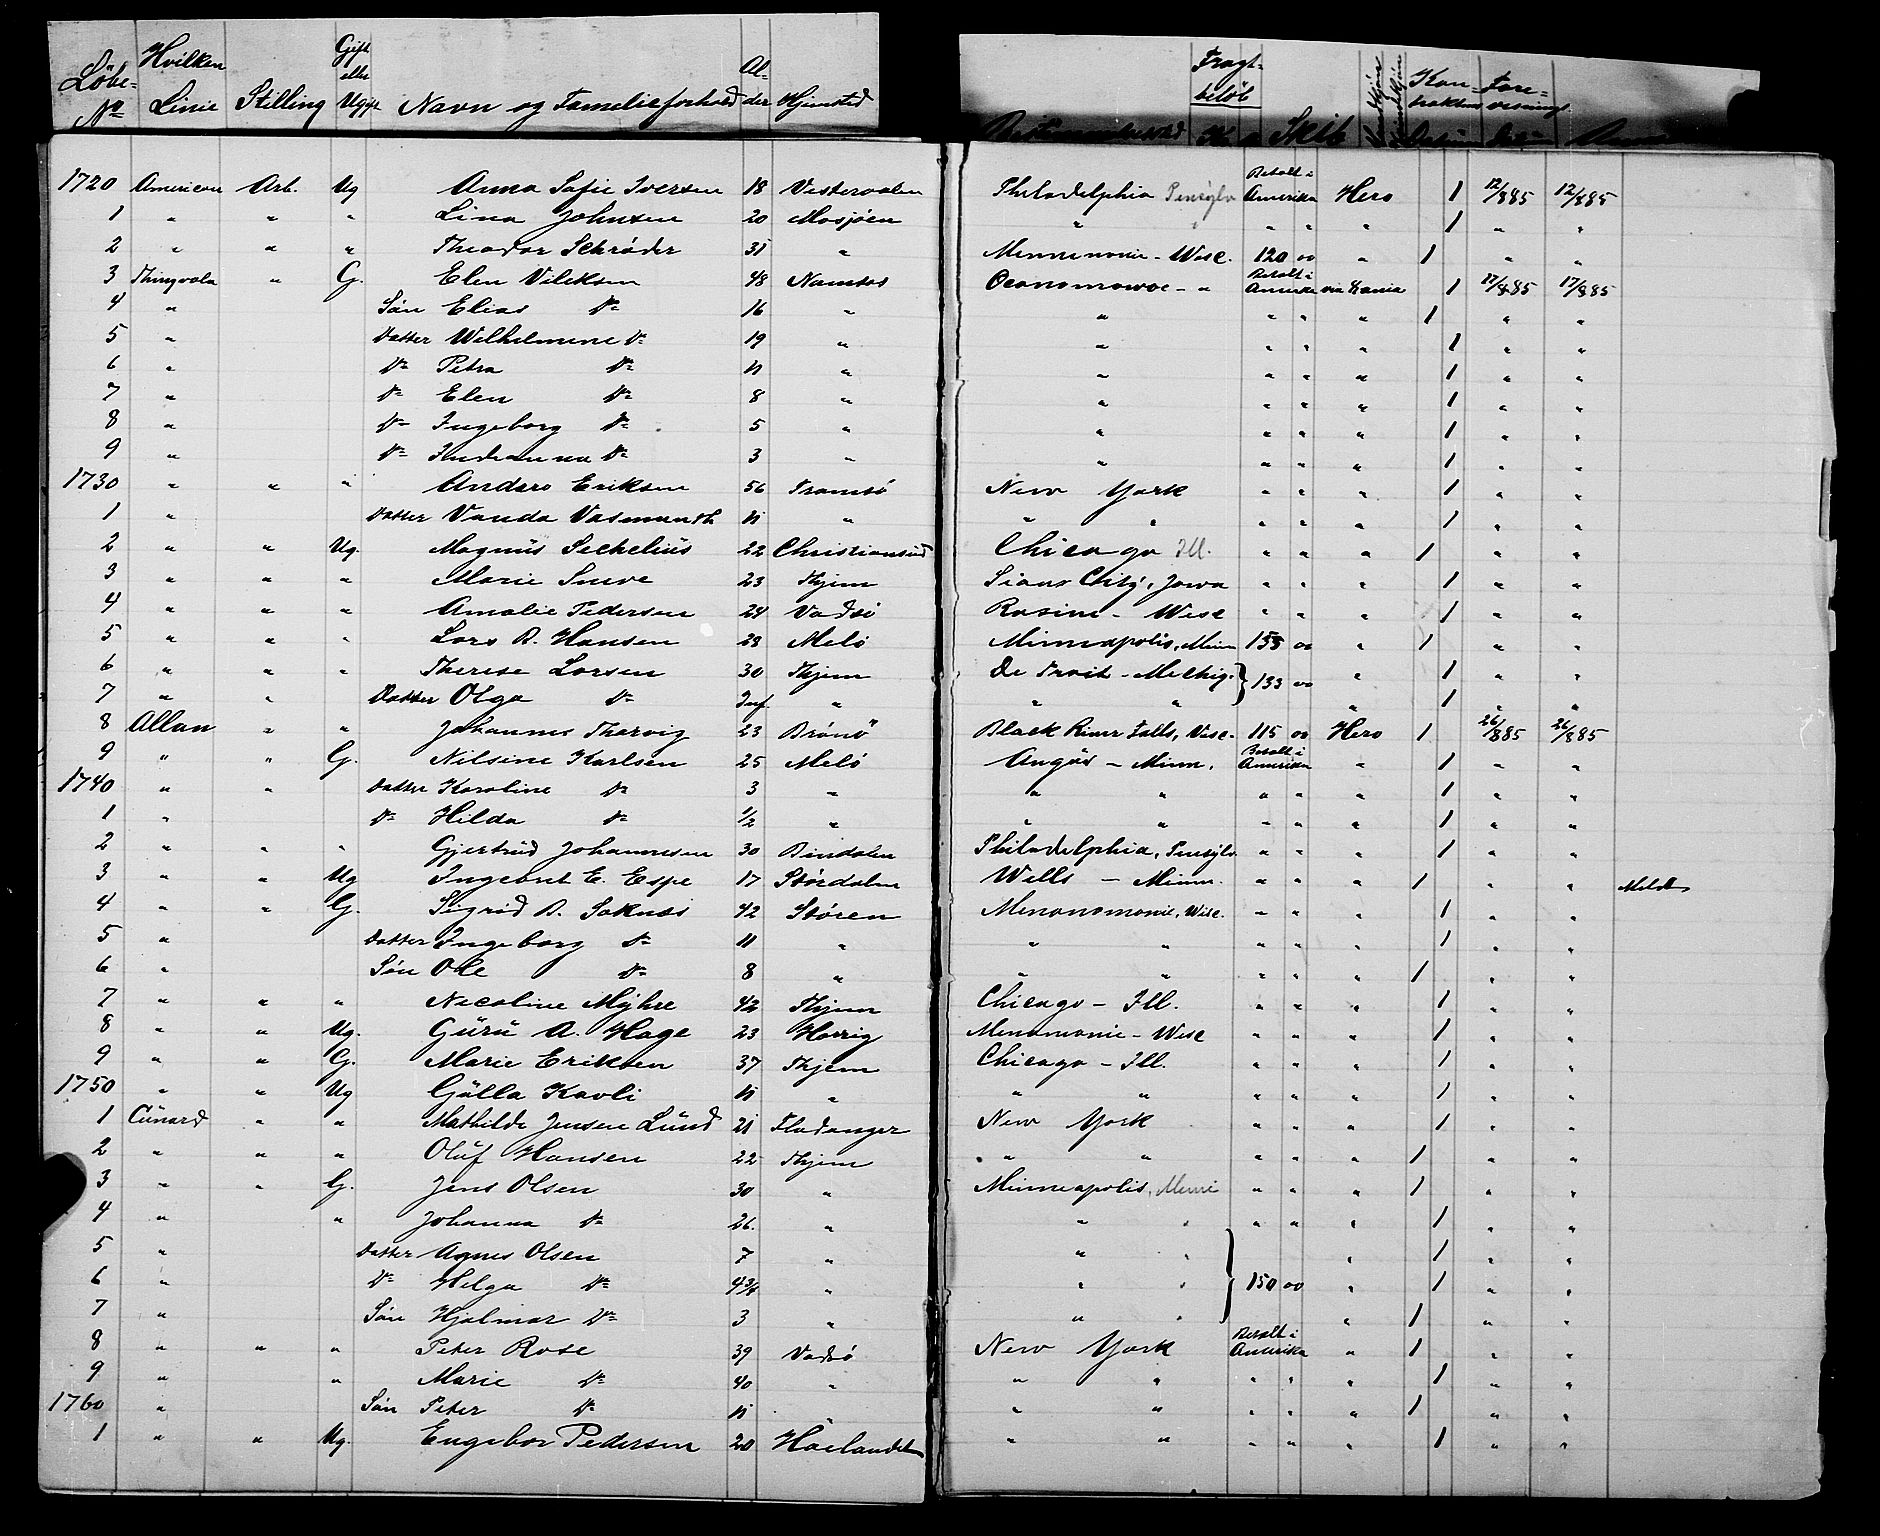 Löbe- No Hvilken Linie Stilling Gift eller Ugift Navn og Familieforhold Al- der Hjemsted Fragt- beløb Skib Kon- traktens Fore- visnings
1720 American Arb. Ug Anna Sofie Iversen 18 Vesteraalen Philadelphia Pensylv Betalt i Amerika Hero 1 12/885 12/885
1 " " " Lina Johnsen 20 Mosjøen " " " " 1 " "
2 " " " Theodor Schrøder 31 " Mennemonie - Wisc. 120 00 " 1 " "
3 Thingvala " G. Elen Vileksen 48 Namsos Oconomowoc - " Betalt i Amerika via Xania 1 17/885 17/885
4 " Søn Elias Do 16 " " " " " 1 " "
5 " Datter Wilhelmine Do 19 " " " " " 1 " "
6 " Do Petra Do 11 " " " " " 1 " "
7 " Do Elen Do 8 " " " " " 1 " "
8 " Do Ingeborg Do 5 " " " " " 1 " "
9 " Do Do 3 " " " " " 1 " "
1730 " " " Anders Eriksen 56 Tromsø New York " " " 1 " "
1 " Datter Vanda Vasmundt 11 " " " " " " 1 " "
2 " " Ug. Magnus Sechelius 22 Christiansund Chicago Ill. " " " 1 " "
3 " " " Marie Sneve 23 Thjem Sioux City, Jowa " " " 1 " "
4 " " " Amalie Pedersen 24 Vadsø Rasine - Wisc " " " 1 " "
5 " " " Lars B. Hansen 23 Melø Minneapolis, Minn 153 00 " 1 " "
6 " " " Therese Larsen 30 Thjem De Troit - Mechig. } 133 00 " 1 " "
7 " " Datter Olga Do Inf. " " " " 1 " "
8 Allan " " Johannes Thervig 23 Brønø Black River Falls, Visc. 115 00 Hero 1 26/885 26/885
9 " " G. Nilsine Karlsen 25 Melø Angus - Minn. Betalt i Amerika " 1 " "
1740 " " Datter Karoline Do 3 " " " " " " 1 " "
1 " Do Hilda Do 1/2 " " " " " " 1 " "
2 " " " Gjertrud Johannesen 30 Bindalen Philadelphia, Pensylv. " " " 1 " "
3 " " Ug Ingebret E. Espe 17 Størdalen Wells - Minn. " " " 1 " " Meldt
4 " " G. Sigrid B. Saknæs 42 Støren Menonomonie, Wisc. " " " 1 " "
5 " Datter Ingeborg Do 11 " " " " " " 1 " "
6 " Søn Ole Do 8 " " " " " " 1 " "
7 " " " Nicoline Myhre 42 Thjem Chicago - Ill. " " " 1 " "
8 " " Ug. Guru A. Hage 23 Horrig Menomonie - Wisc " " " 1 " "
9 " " G. Marie Eriksen 37 Thjem Chicago - Ill. " " " 1 " "
1750 " " Ug Gølla Kavli 11 " " " " " " 1 " "
1 Cunard " " Mathilde Jensen Lund 21 Fladanger New York " " " 1 " "
2 " " " Oluf Hansen 22 Thjem " " " " " 1 " "
3 " " G. Jens Olsen 30 " Minneapolis, Minn " " " 1 " "
4 " " Johanna Do 26. " " " " " " 1 " "
5 " Datter Agnes Olsen 7 " " " " 1 " "
6 " Do Helga Do 4 3/4 " " " } 150 00 " 1 " "
7 " Søn Hjalmar Do 3 " " " " 1 " "
8 " " " Peter Rose 39 Vadsø New York Betalt i Amerika " 1 " "
9 " " Marie Do 40 " " " " " " 1 " "
1760 " Søn Peter Do 11 " " " " " " 1 " "
1 " " Ug. Engebor Pedersen 20 Høelandet " " " " " 1 " "